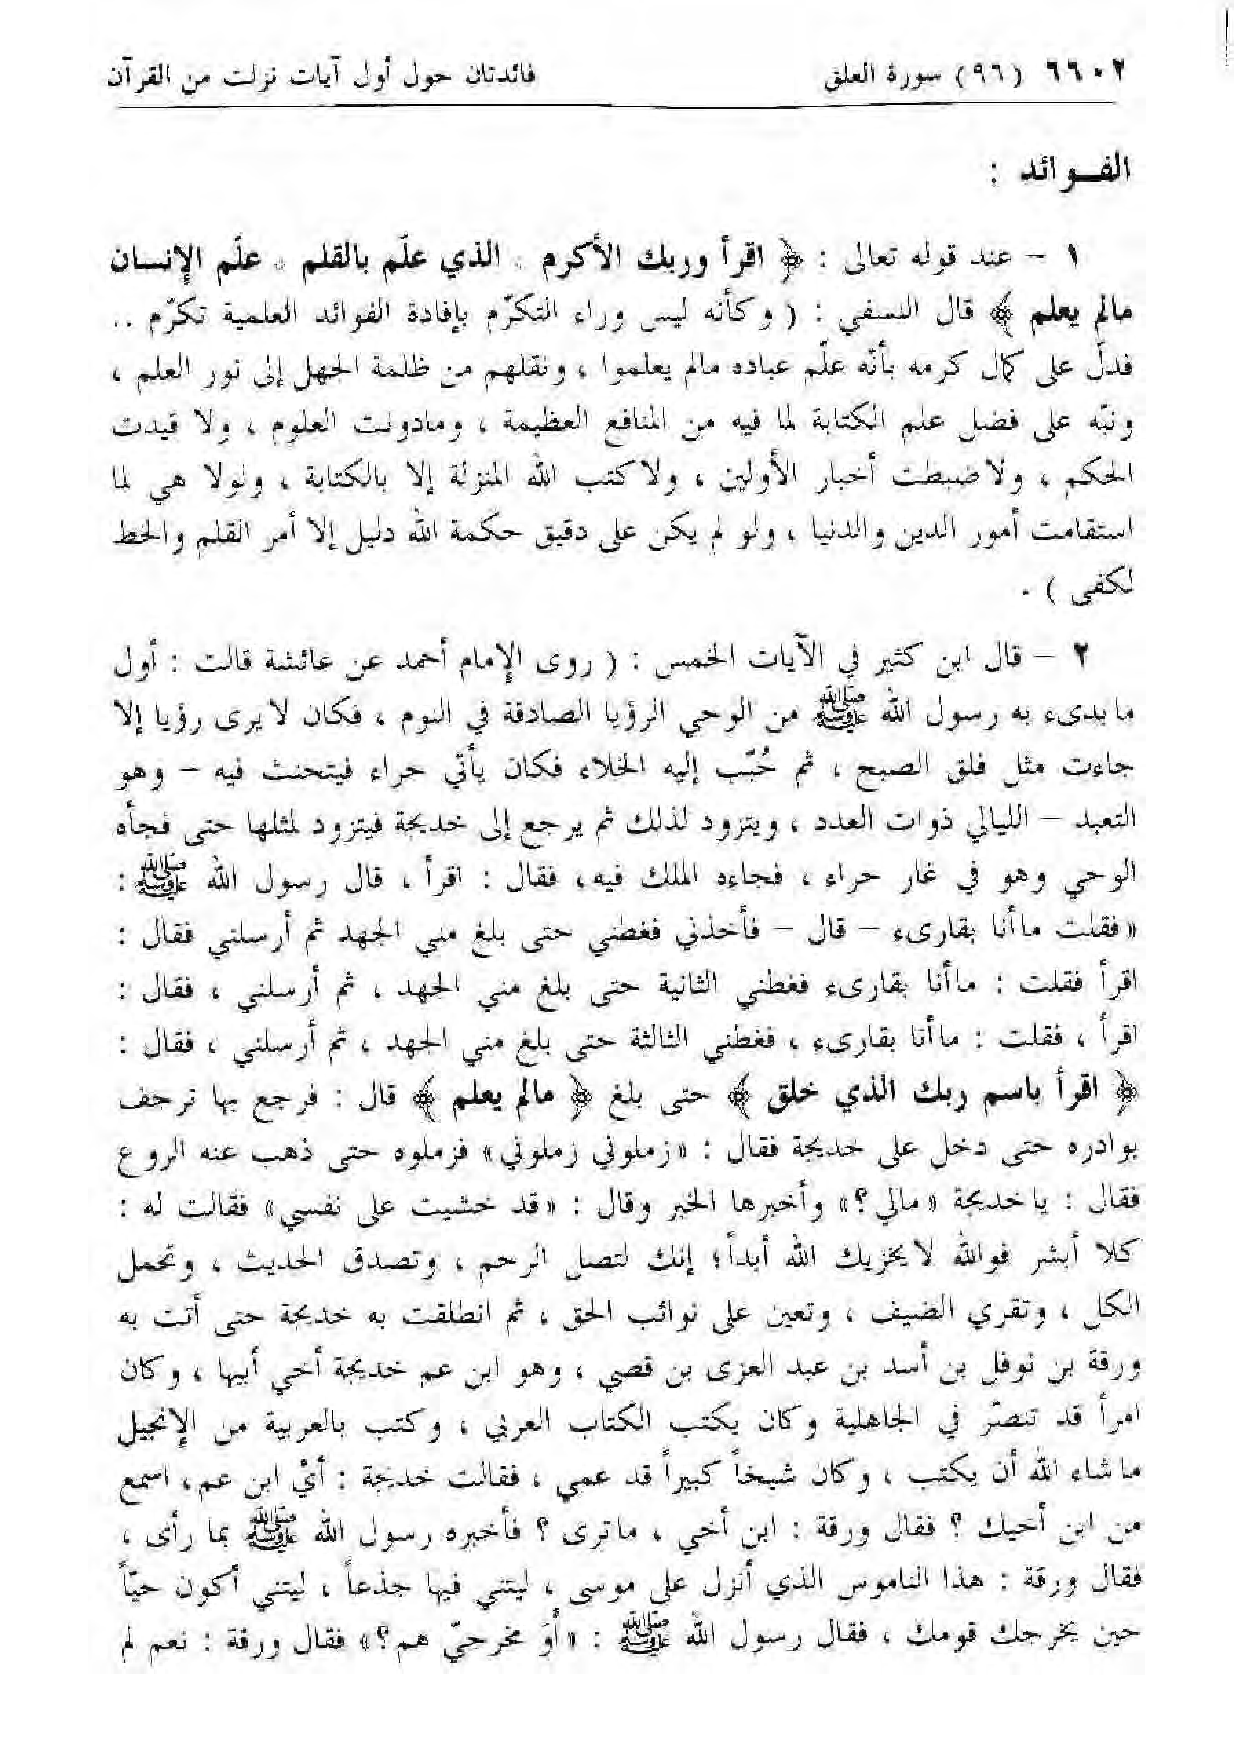 ٦٦٠٢ (٩٦) سورة العلق فائدتان حول أول آيات نزلت من القرآن
الفـوائد :
١ – عند قوله تعالى : ﴿ اقرأ وربك الأكرم * الذي علّم بالقلم * علّم الإنسان
مالم يعلم ﴾ قال النسفي : ( وكأنه ليس وراء التكرّم بإفادة الفوائد العلمية تكرّم ..
فدلّ على كمال كرمه بأنّه علّم عباده مالم يعلموا ، ونقلهم من ظلمة الجهل إلى نور العلم ،
ونبّه على فضل علم الكتابة لما فيه من المنافع العظيمة ، ومادونت العلوم ، ولا قيدت
الحكم ، ولا ضبطت أخبار الأولين ، ولا كتب الله المنزلة إلا بالكتابة ، ولولا هي لما
استقامت أمور الدين والدنيا ، ولو لم يكن على دقيق حكمة الله دليل إلا أمر القلم والخط
لكفى ) .
٢ – قال ابن كثير في الآيات الخمس : ( روى الإمام أحمد عن عائشة قالت : أول
ما بدىء به رسول الله ﷺ من الوحي الرؤيا الصادقة في النوم ، فكان لا يرى رؤيا إلا
جاءت مثل فلق الصبح ، ثم حُبّب إليه الخلاء فكان يأتي حراء فيتحنث فيه – وهو
التعبد – الليالي ذوات العدد ، ويتزود لذلك ثم يرجع إلى خديجة فيتزود لمثلها حتى فجأه
الوحي وهو في غار حراء ، فجاءه الملك فيه، فقال : اقرأ ، قال رسول الله ﷺ :
« فقلت ماأنا بقارىء – قال – فأخذني فغطني حتى بلغ مني الجهد ثم أرسلني فقال :
اقرأ فقلت : ماأنا بقارىء فغطني الثانية حتى بلغ مني الجهد ، ثم أرسلني ، فقال :
اقرأ ، فقلت : ماأنا بقارىء ، فغطني الثالثة حتى بلغ مني الجهد ، ثم أرسلني ، فقال :
﴿ اقرأ باسم ربك الذي خلق ﴾ حتى بلغ ﴿ مالم يعلم ﴾ قال : فرجع بها ترجف
بوادره حتى دخل على خديجة فقال : «زملوني زملوني» فزملوه حتى ذهب عنه الروع
فقال : ياخديجة «مالي؟» وأخبرها الخبر وقال : «قد خشيت على نفسي» فقالت له :
كلا أبشر فوالله لا يخزيك الله أبداً؛ إنك لتصل الرحم ، وتصدق الحديث ، وتحمل
الكل ، وتقري الضيف ، وتعين على نوائب الحق ، ثم انطلقت به خديجة حتى أتت به
ورقة بن نوفل بن أسد بن عبد العزى بن قصي ، وهو ابن عم خديجة أخي أبيها ، وكان
امرأ قد تنصّر في الجاهلية وكان يكتب الكتاب العربي ، وكتب بالعربية من الإنجيل
ماشاء الله أن يكتب ، وكان شيخاً كبيراً قد عمي ، فقالت خديجة : أيْ ابن عم، اسمع
من ابن أخيك ؟ فقال ورقة : ابن أخي ، ماترى ؟ فأخبره رسول الله ﷺ بما رأى ،
فقال ورقة : هذا الناموس الذي أنزل على موسى ، ليتني فيها جذعاً ، ليتني أكون حيّاً
حين يخرجك قومك ، فقال رسول الله ﷺ : «أوَ مخرجيّ هم؟» فقال ورقة : نعم لم